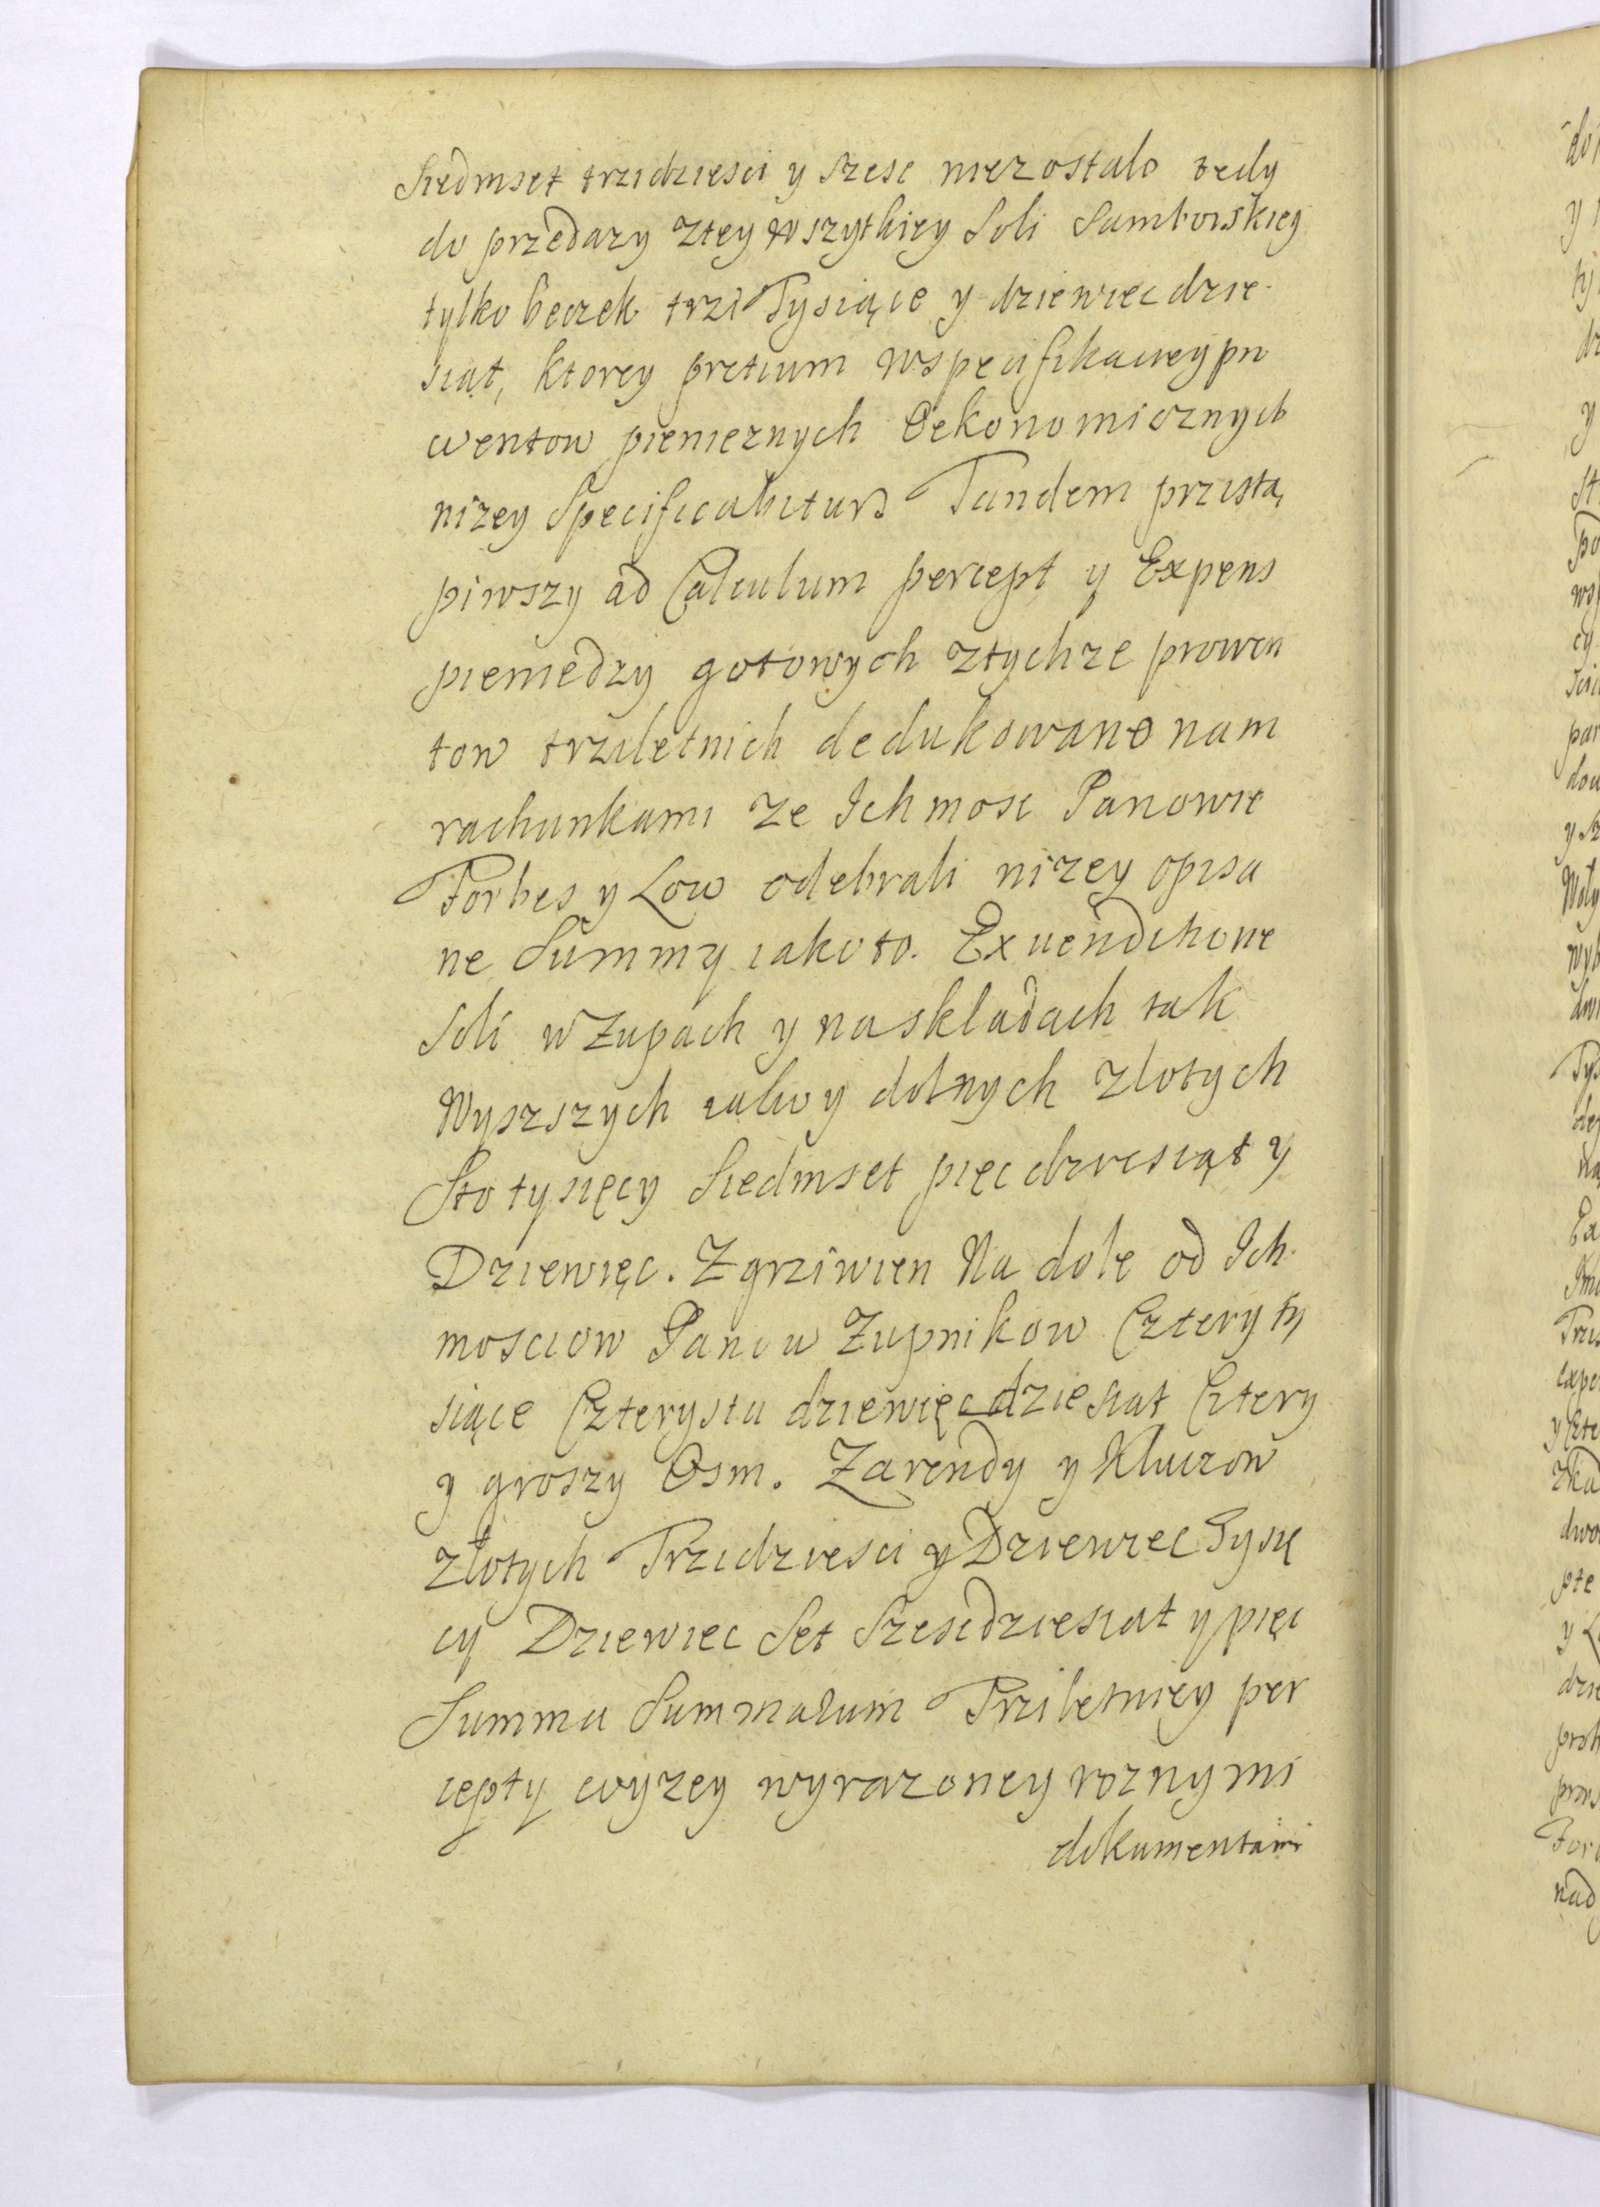 Siedmset trzidziesci y szesc niezostalo tedy
do przedazy ztey wszytkiey Soli Samborskiey
tylko beczek trzi Tysiące y dziewiecdzie-
siąt, ktorey pretium wspecifikacieypro
wentow pienieznych Oekonomicznych
nizey Specificabiturs Tandem przistą
piwszy ad Calculum percept y Expens
pieniedzy gotowych ztychze prowen
tow trziletnich dedukowano nam
rachunkami ze Ichmosc Panowie
Forbes y Low odebrali nizey opisa
ne Summy iakoto. Exuenditione
Soli w Zupach y naskladach tak
Wyszszych iako y dolnych zlotych
Sto tysięcy Siedmset pięcdziesiąt y
Dziewięc. Zgrziwien Na dole od Ich-
mosciow Panow Zupnikow Cztery ty
siące Czterysta dziewięcdziesiat Cztery
y groszy Osm. Zarendy y Kluczow
złotych Trzidziesci y Dziewiec Tysię
cy Dziewiec Set Szescdziesiat y pięc
Summa Summarum Trziletniey per
cepty wyzey wyrazoney roznymi
dokumentami